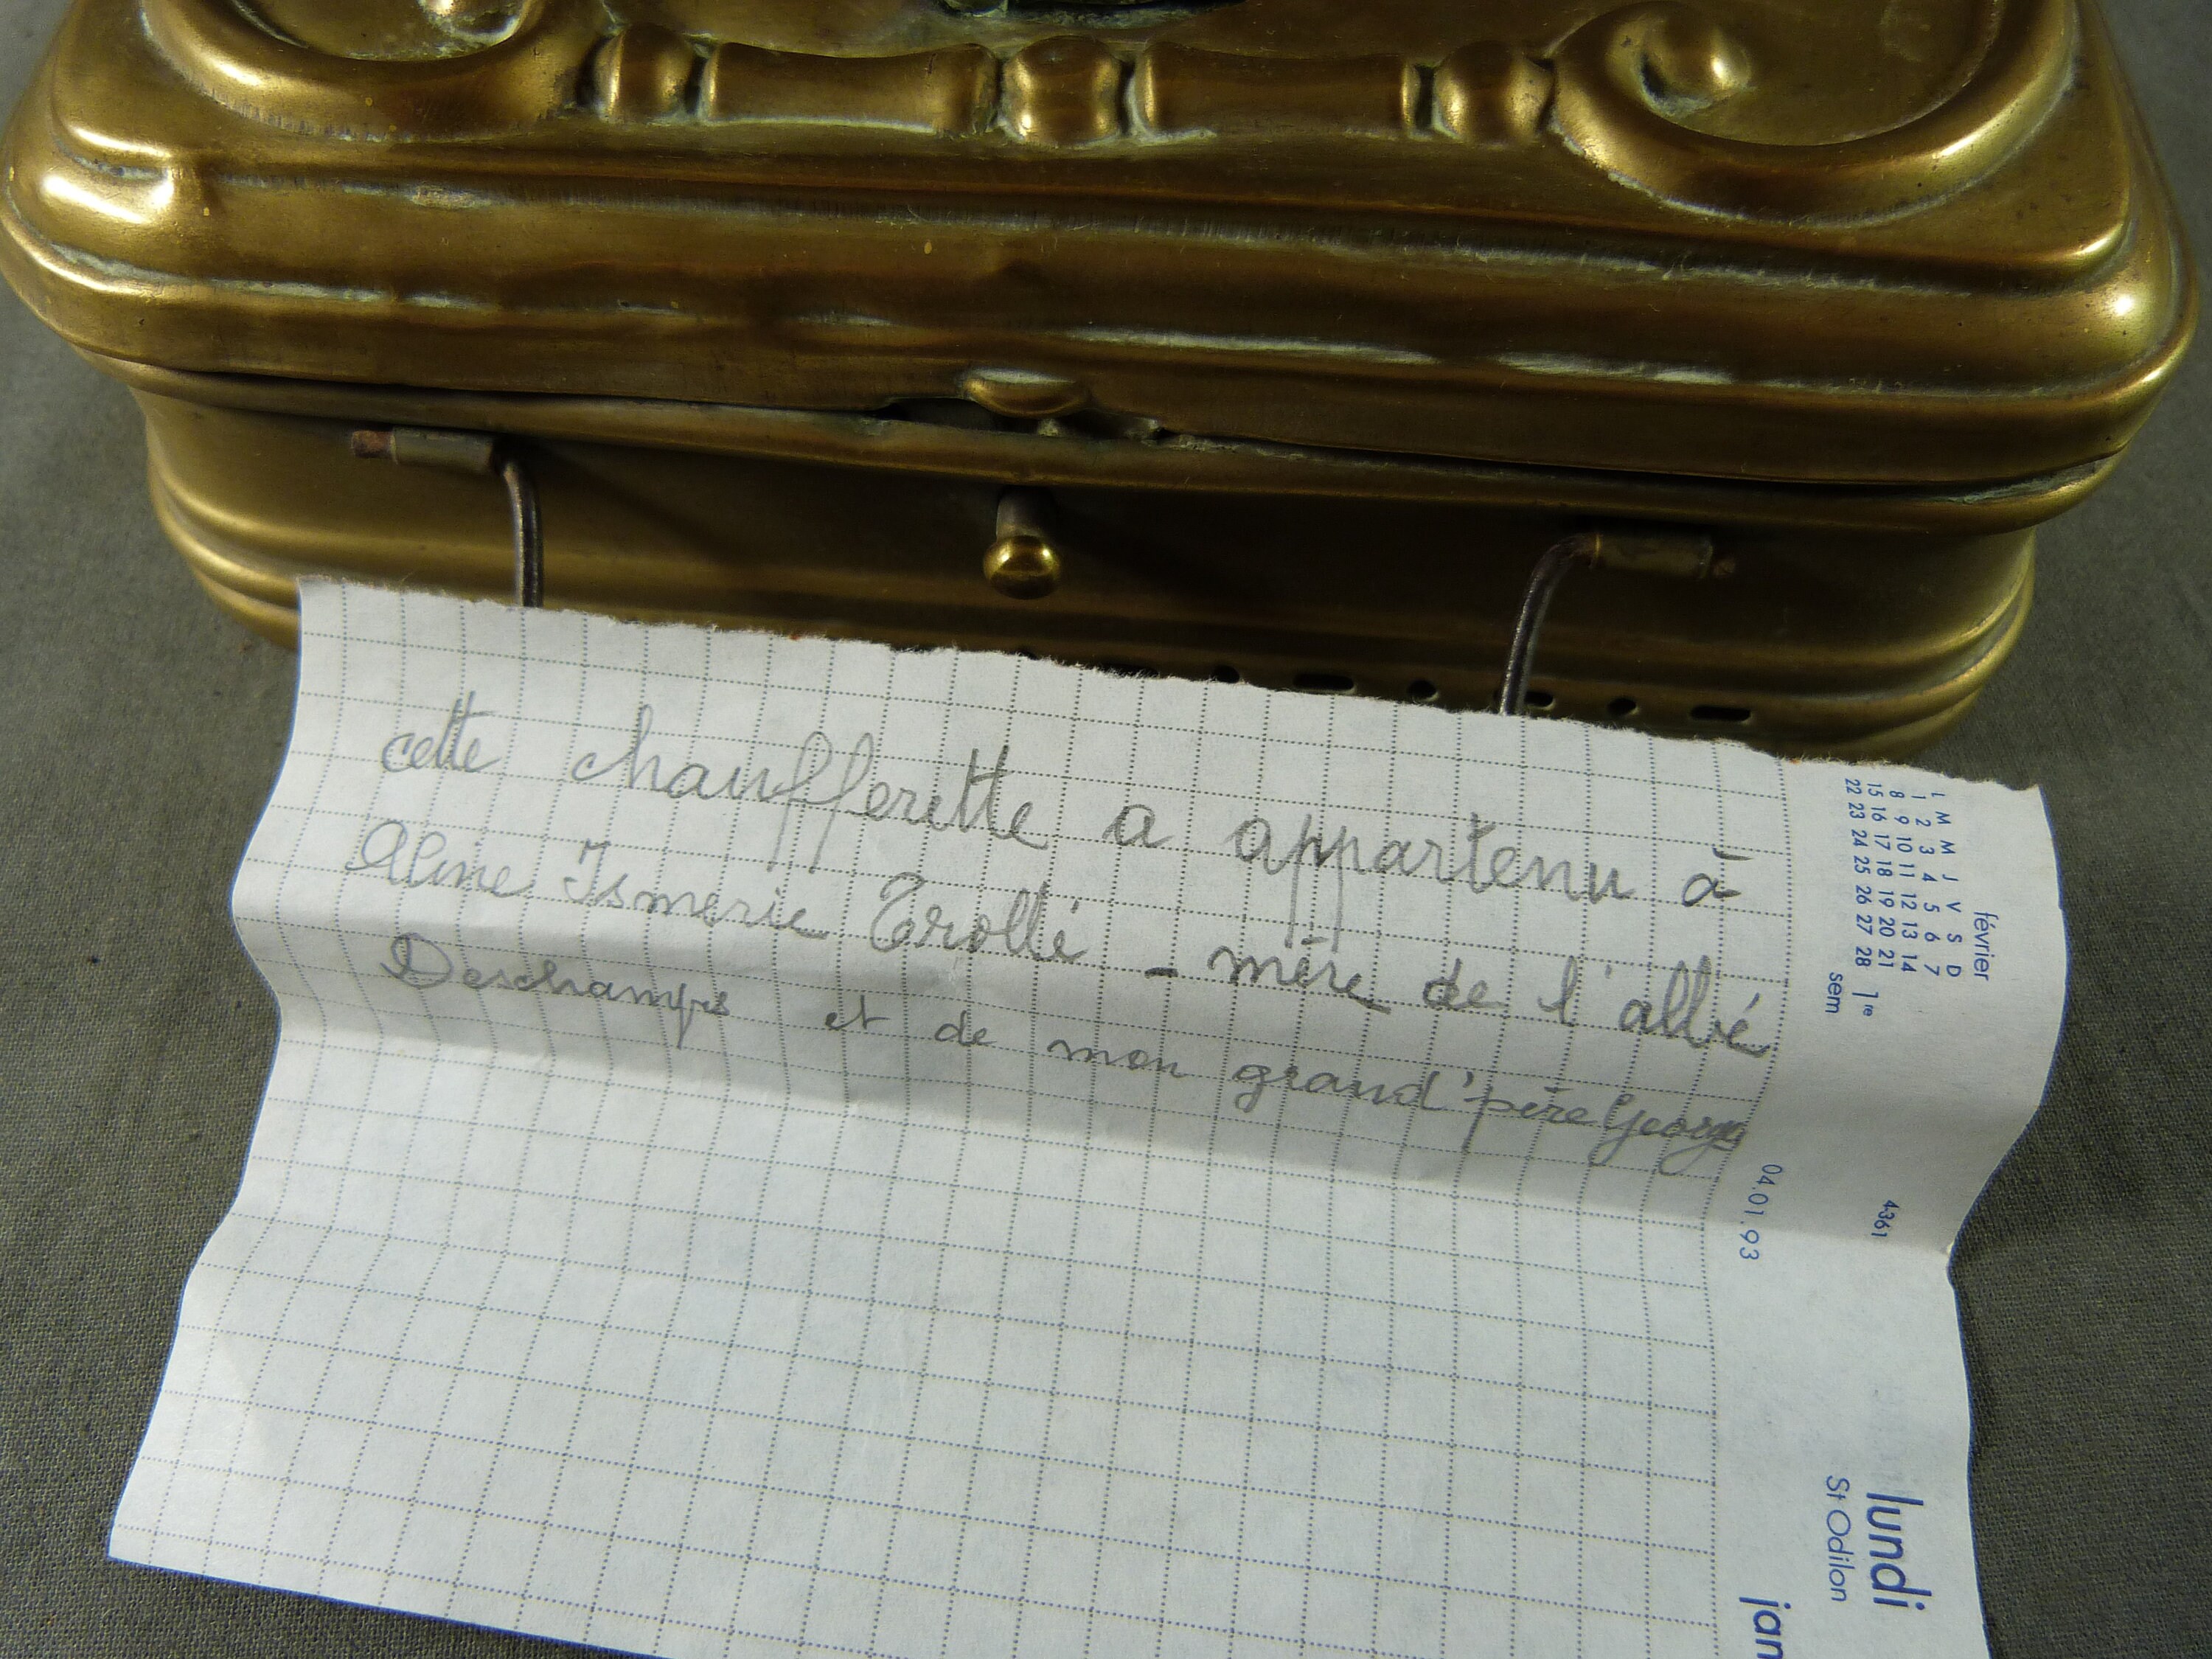 cette chaufferette a appartenu à
Aline Ismerie Trollé - mère de l'abbé
Deschamps et de mon grand'père Georges
février
L M M J V S D
1 2 3 4 5 6 7
8 9 10 11 12 13 14
15 16 17 18 19 20 21
22 23 24 25 26 27 28
1re
sem
4361
04.01.93
lundi
St Odilon
jan